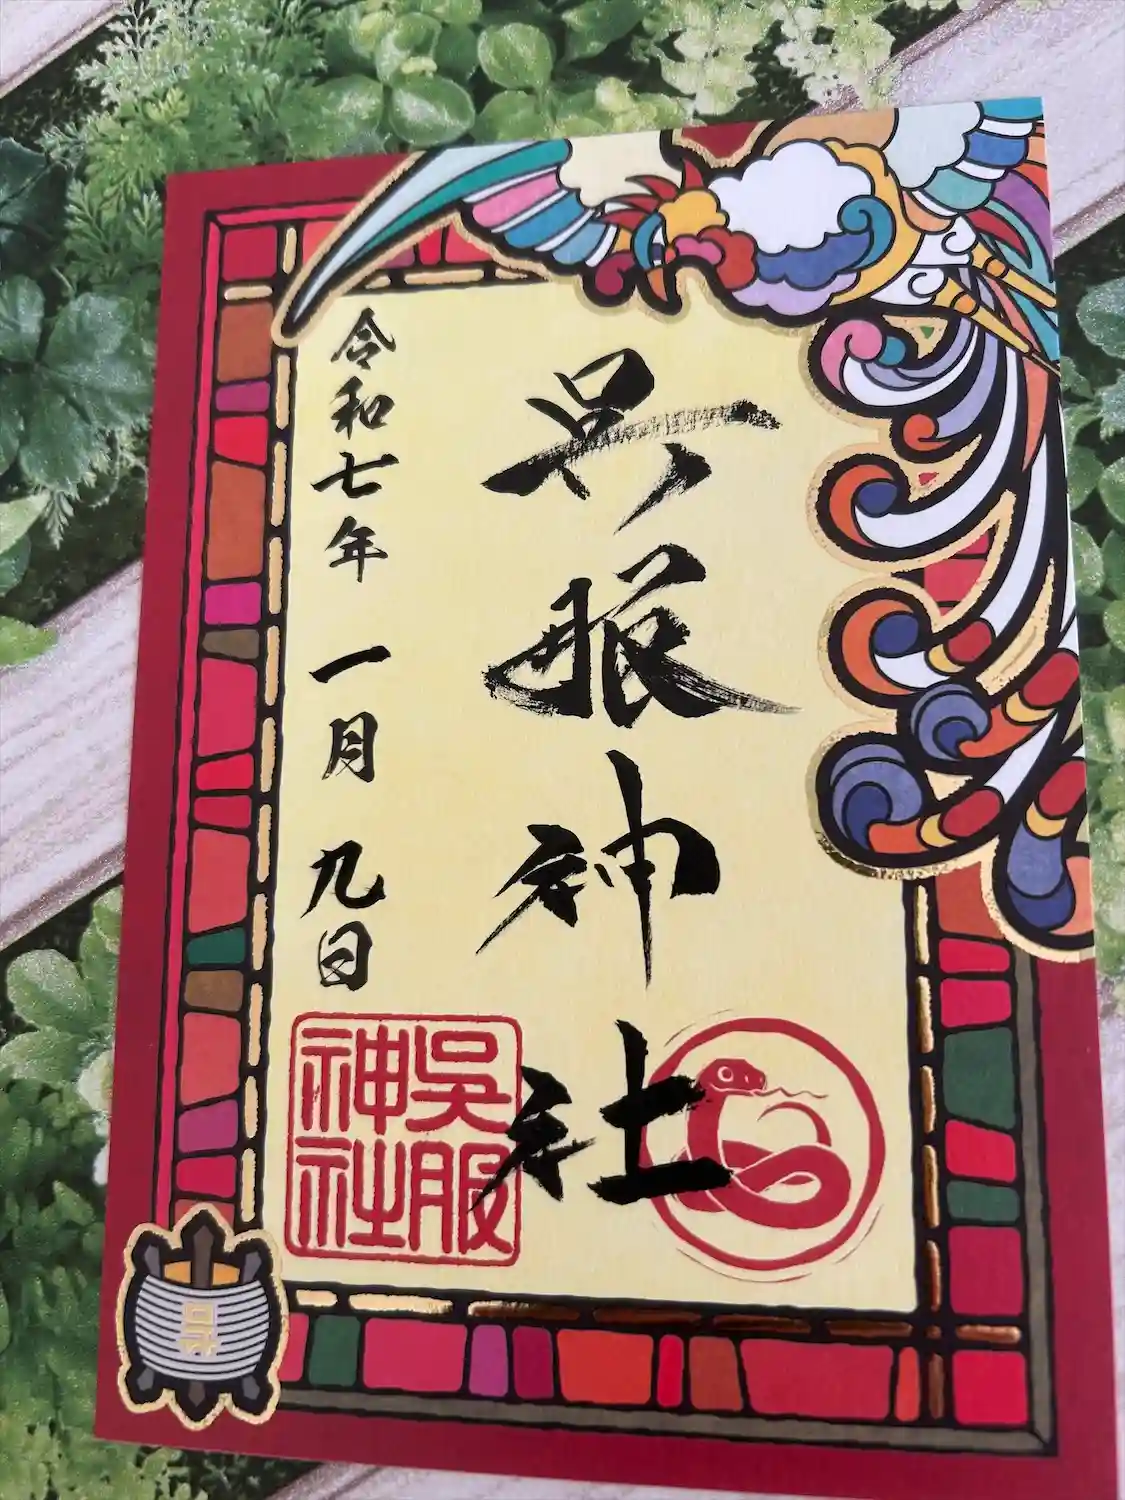 呉服神社
令和七年一月九日
呉服
神社